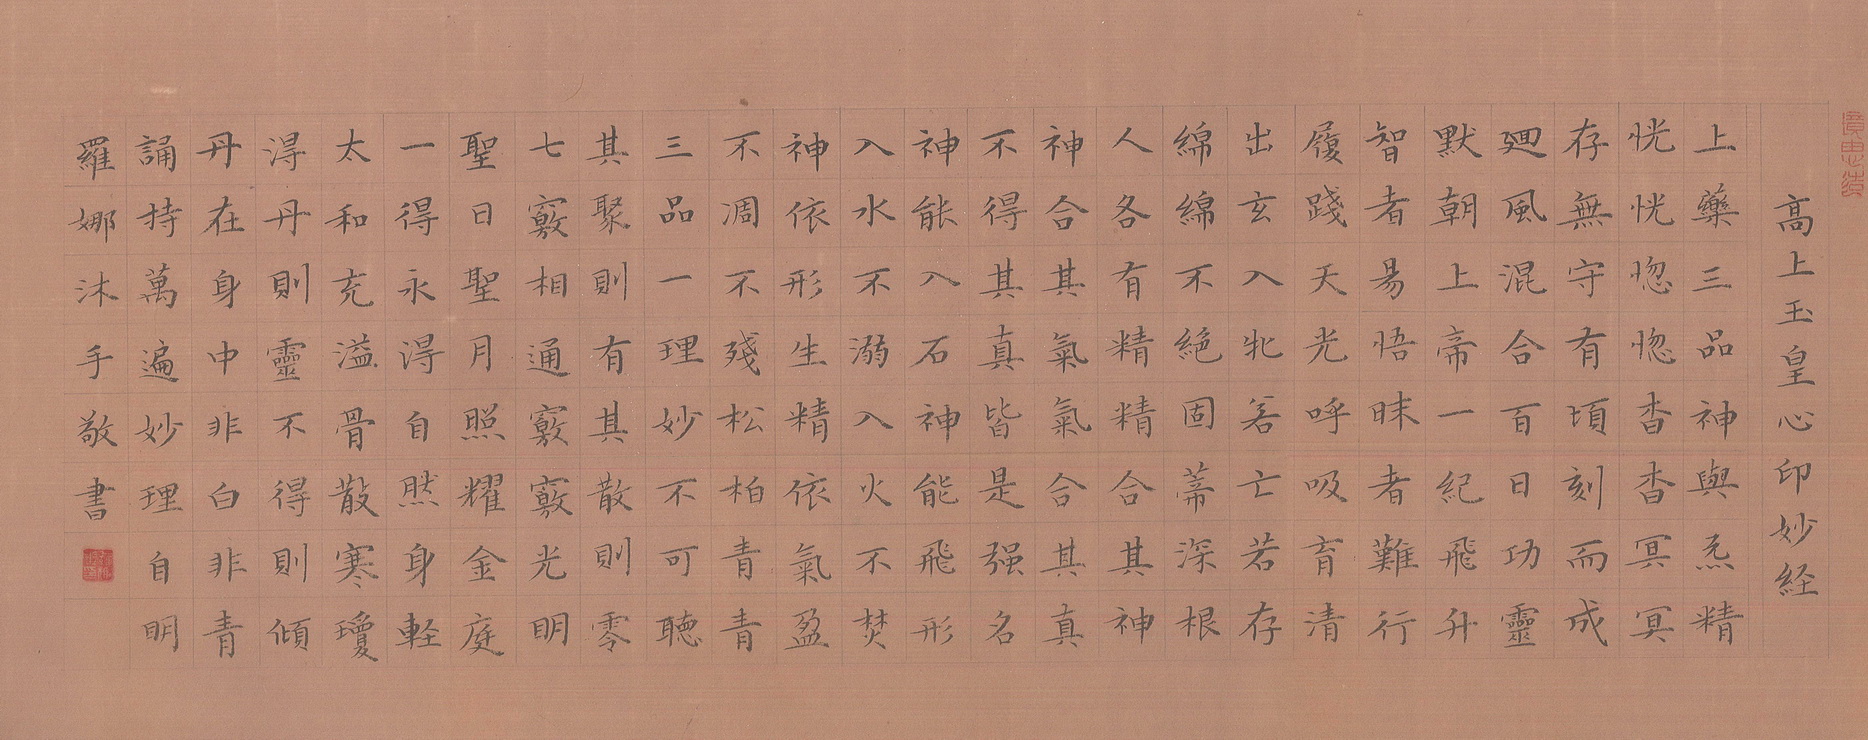 高上玉皇心印妙経
上藥三品神與炁精
恍恍惚惚杳杳冥冥
存無守有頃刻而成
廻風混合百日功靈
默朝上帝一紀飛升
智者易悟昧者難行
履踐天光呼吸育清
出玄入牝若亡若存
綿綿不絕固蒂深根
人各有精精合其神
神合其氣氣合其真
不得其真皆是强名
神能入石神能飛形
入水不溺入火不焚
神依形生精依氣盈
不凋不殘松柏青青
三品一理妙不可聽
其聚則有其散則零
七竅相通竅竅光明
聖日聖月照耀金庭
一得永得自然身軽
太和充溢骨散寒瓊
得丹則靈不得則傾
丹在身中非白非青
誦持萬遍妙理自明
羅娜沐手敬書